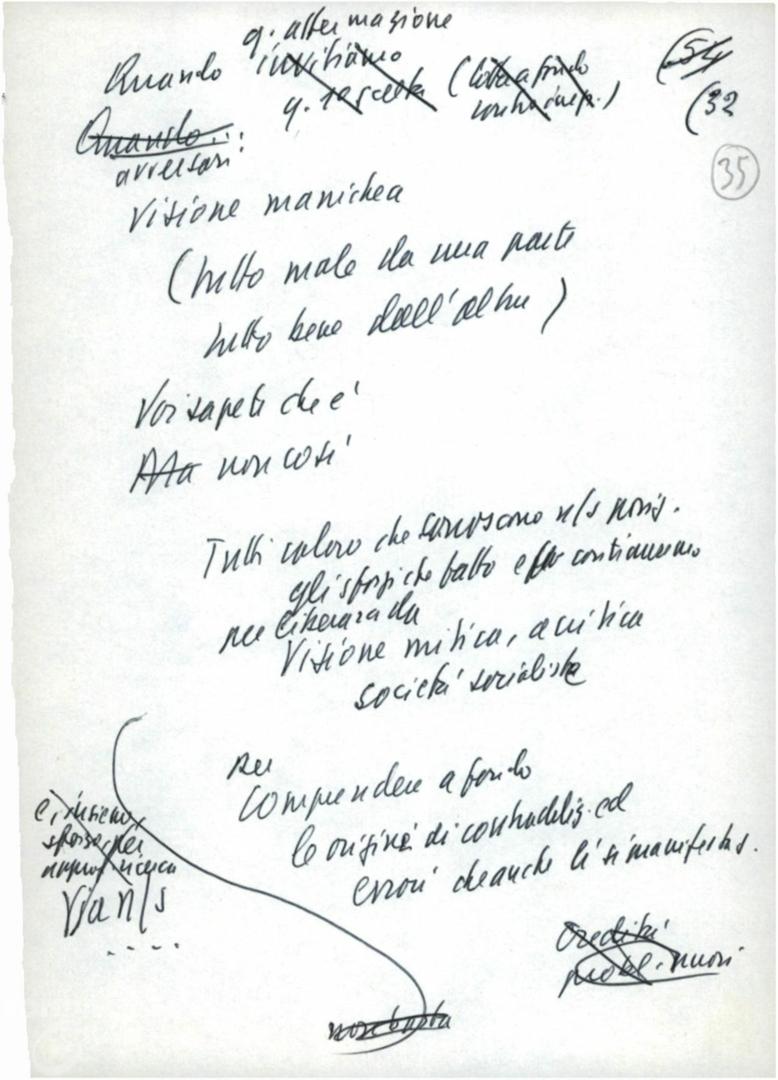 q. affermazione
Quando invitiamo
q. rescelta (lotta a fondo
contro imp.)
(54
(32
35
Quando...
avversari:
Visione manichea
(tutto male da una parte
tutto bene dall'altra)
Voi sapete che è
Ma non così
Tutti coloro che conoscono n/s posiz.
gli sforzi che fatto e continueremo
per liberarci da
Visione mitica, acritica
società socialista
per
Comprendere a fondo
le origini di contraddiz. ed
errori che anche lì si manifestas.
e, insieme,
sforzo per
approf. ricerca
Via n/s
.....
non basta
Eredità
probl. nuovi